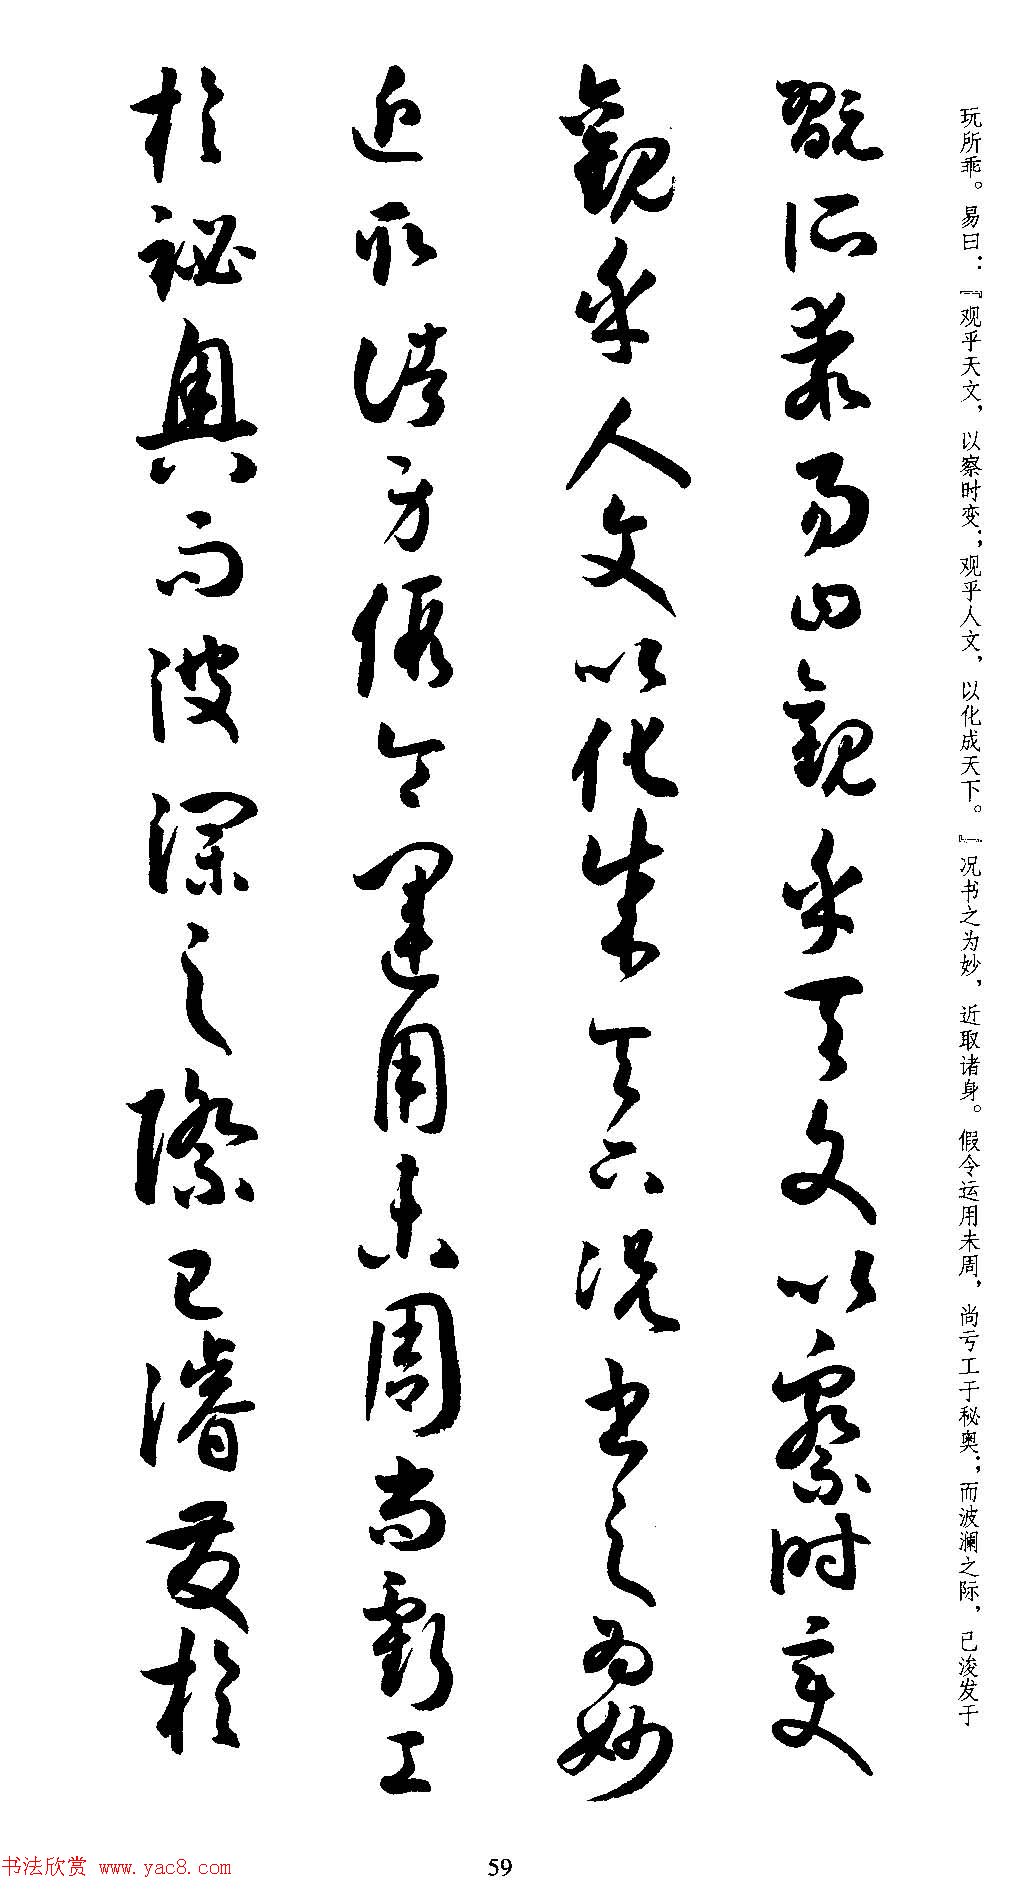 玩所乖。易曰：『观乎天文，以察时变；观乎人文，以化成天下。』况书之为妙，近取诸身。假令运用未周，尚亏工于秘奥；而波澜之际，已浚发于
翫所乖易曰觀乎天文以察時變
觀乎人文以化成天下況書之為妙
近取諸身假令運用未周尚虧工
於祕奧而波瀾之際已濬發於
书法欣赏 www.yac8.com
59